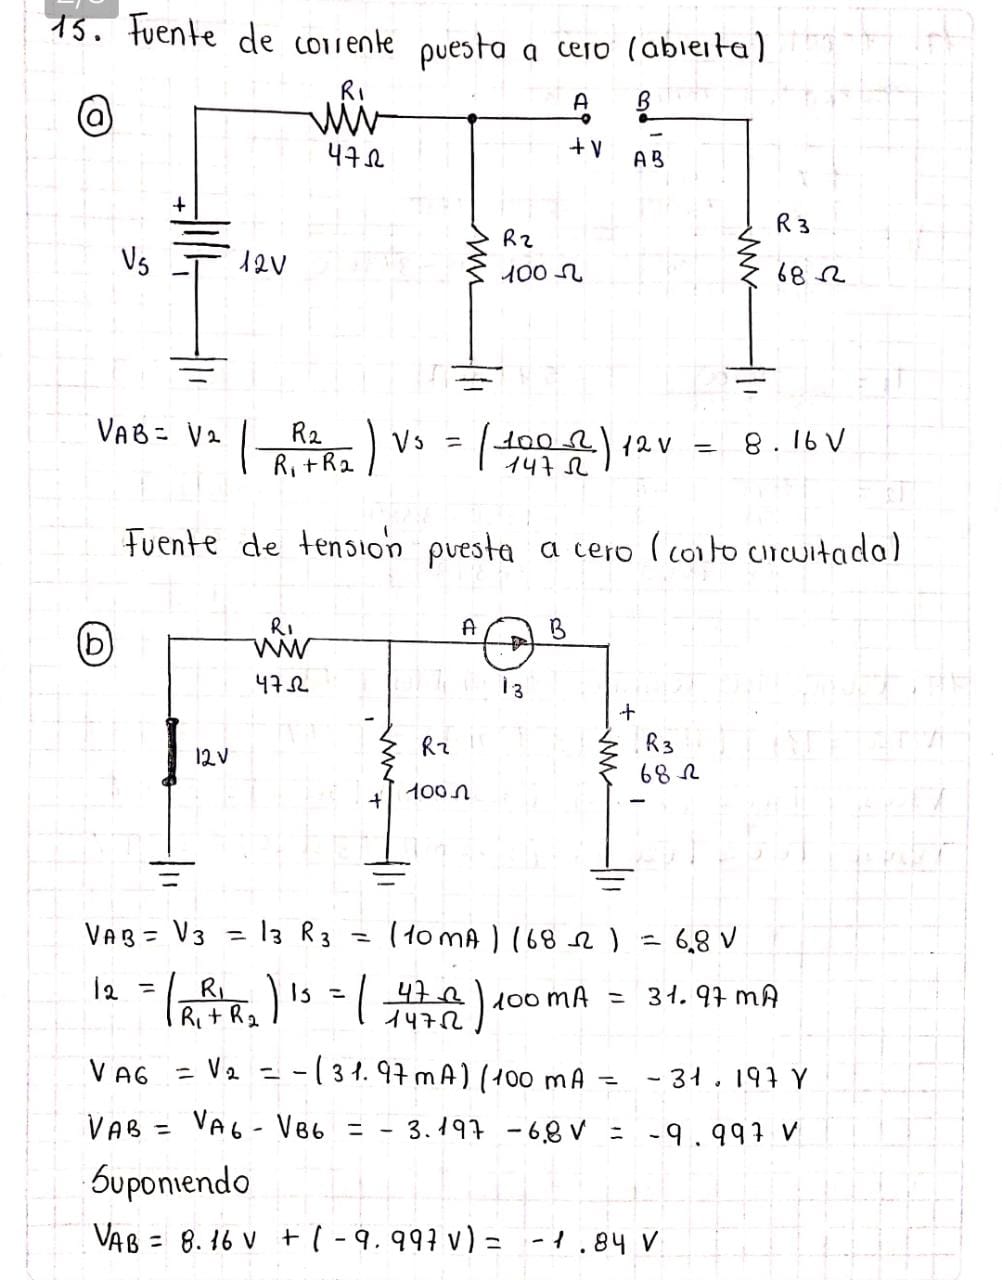 15. Fuente de corriente puesta a cero (abierta)
a
R1
47Ω
A B
+V -
AB
+
Vs
-
12V
R2
100 Ω
R3
68 Ω
VAB = V2 (R2 / R1 + R2) Vs = (100 Ω / 147 Ω) 12V = 8.16 V
Fuente de tensión puesta a cero (corto circuitada)
b
R1
47Ω
A B
I3
12V
-
R2
100Ω
+
+
R3
68 Ω
-
VAB = V3 = I3 R3 = (10 mA) (68 Ω) = 6,8 V
I2 = (R1 / R1 + R2) Is = (47 Ω / 147 Ω) 100 mA = 31.97 mA
VAG = V2 = -(31.97 mA) (100 mA = -31.197 V
VAB = VAG - VBG = -3.197 - 6.8 V = -9.997 V
Suponiendo
VAB = 8.16 V + (-9.997 V) = -1.84 V